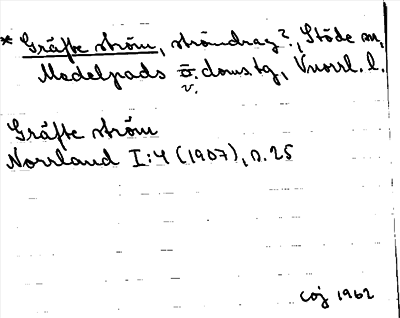 * Gräfte ström, strömdrag?, Stöde sn,
Medelpads v. doms. tg, Vnorrl. l.
Gräfte ström
Norrland I:4 (1907), s. 25
CoJ 1962